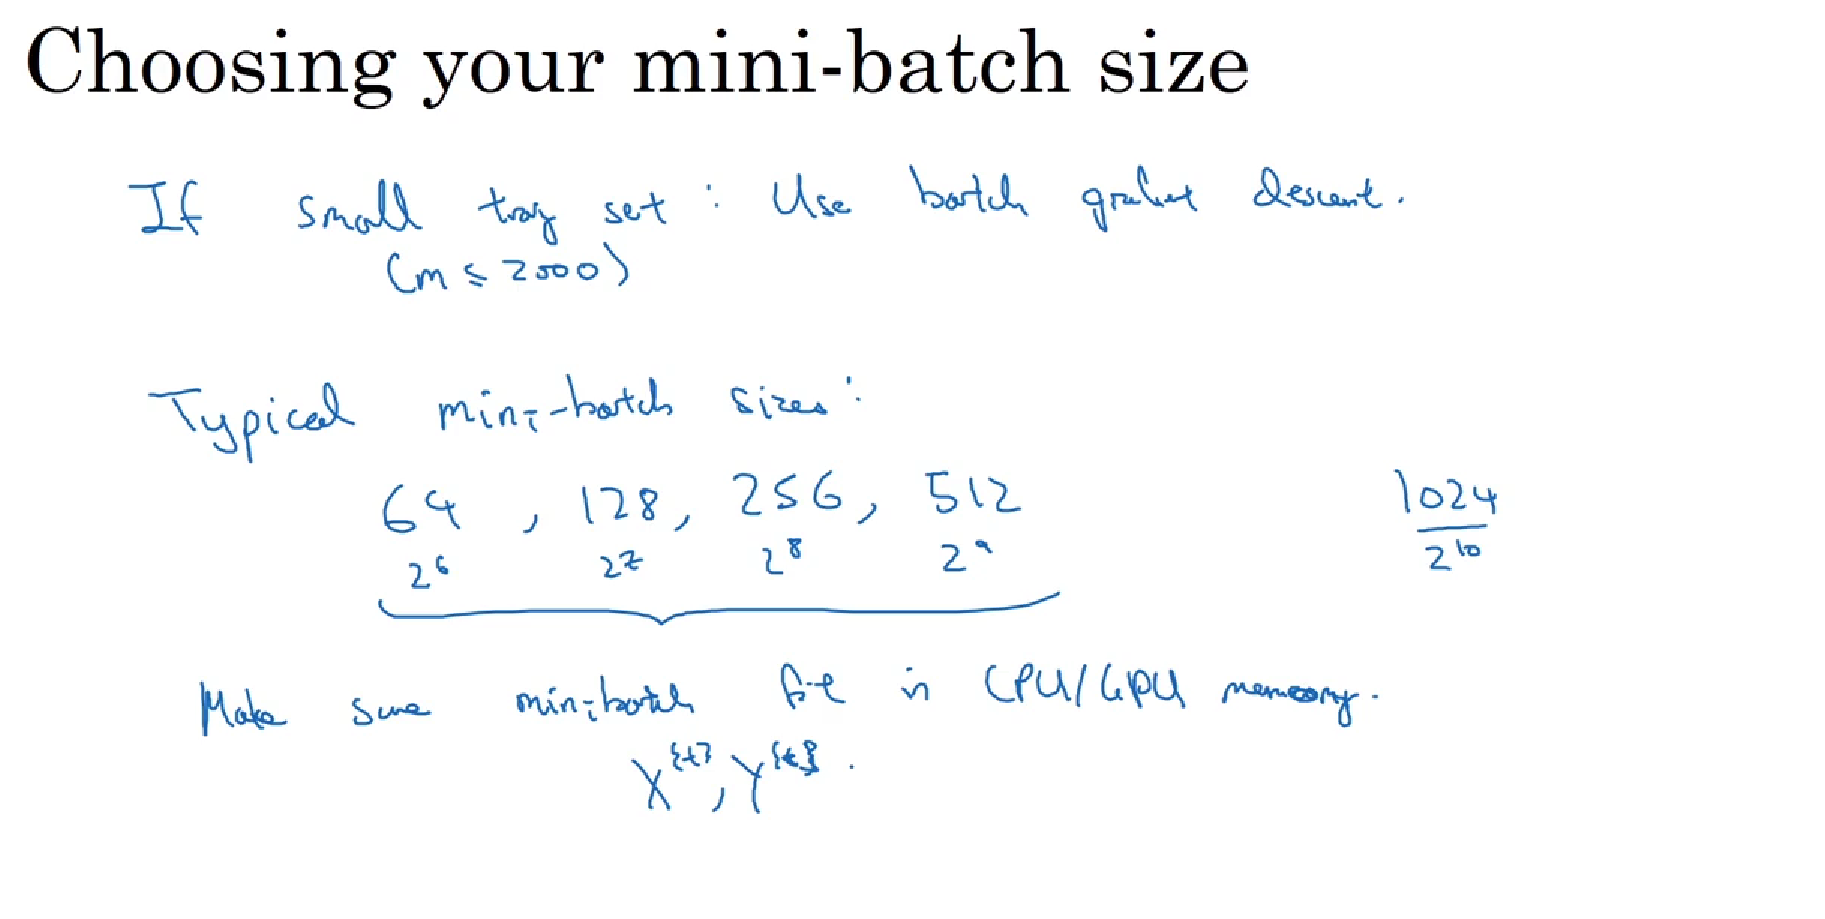 Choosing your mini-batch size
If small tray set : Use batch gradient descent.
(m ≤ 2000)
Typical mini-batch sizes :
64 , 128, 256, 512 1024
2^6 2^7 2^8 2^9 2^10
Make sure minibatch fit in CPU/GPU memory.
X^{t}, Y^{t} .